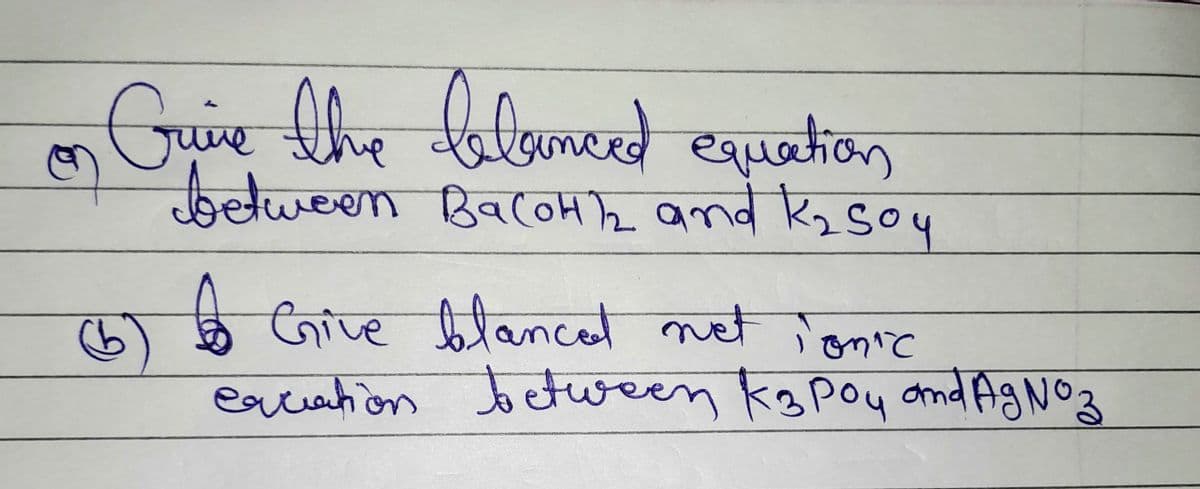 a) Give the balanced equation
between Ba(OH)2 and K2SO4
(b) Give blanced net ionic
equation between K3PO4 and AgNO3